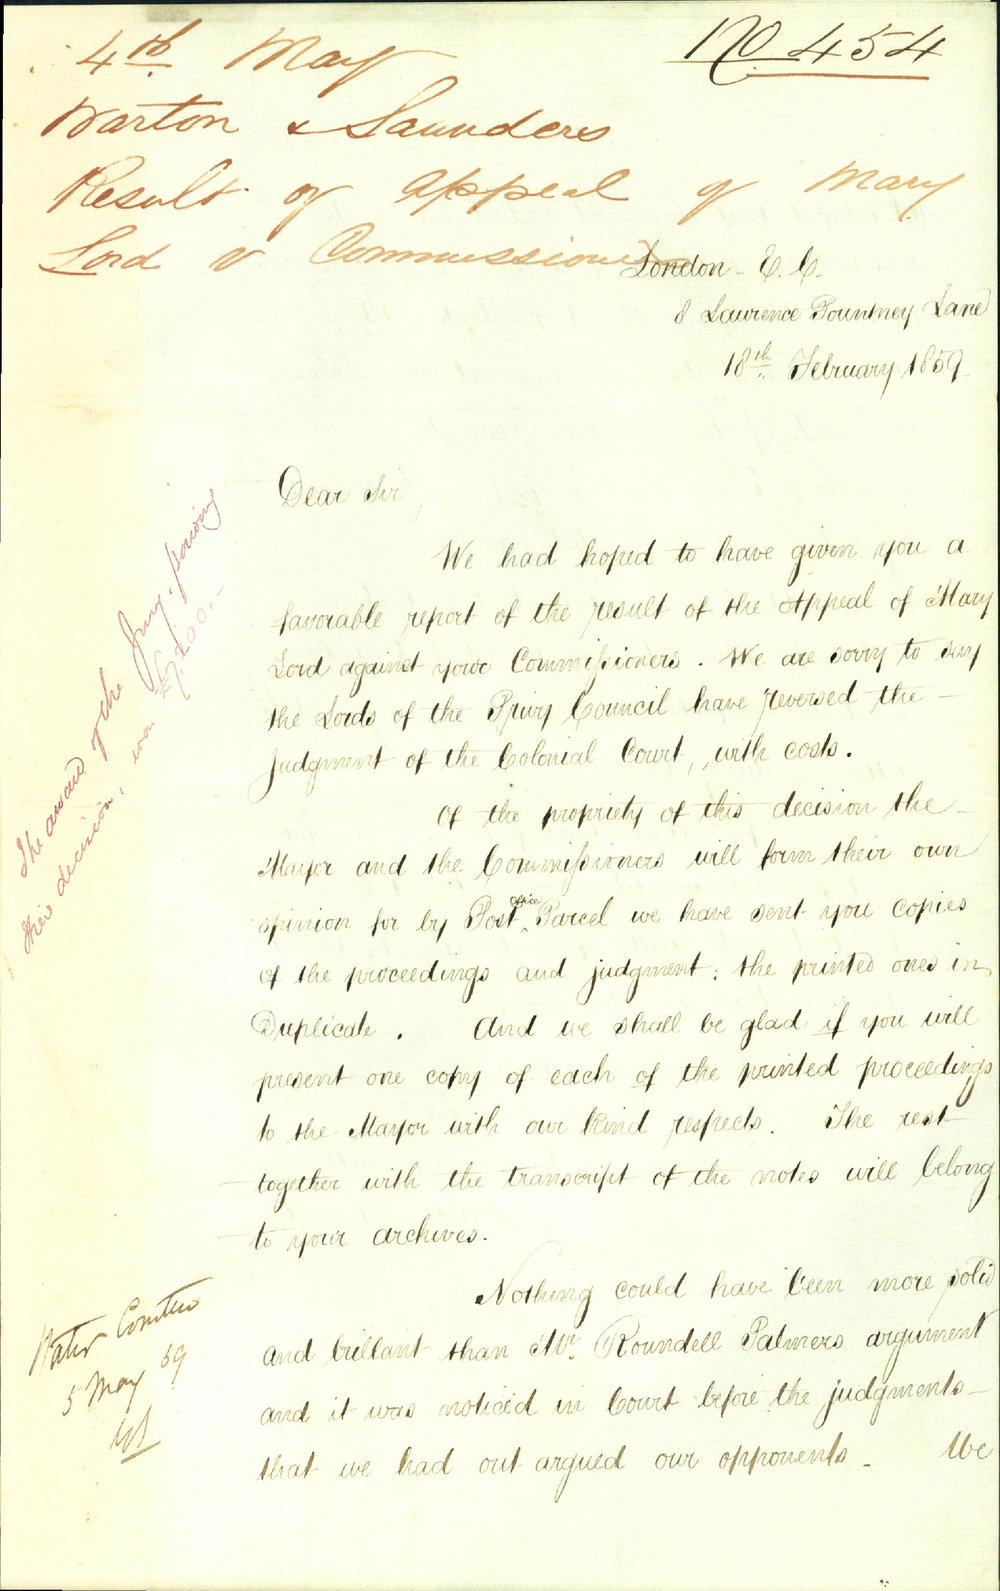 4th May
No 454
Warton & Saunders
Result of Appeal of Mary
Lord v Commissioners
London - E. C.
8 Laurence Pountney Lane
18th February 1859
Dear Sir,
We had hoped to have given you a
favorable report of the result of the Appeal of Mary
Lord against your Commissioners. We are sorry to say
the Lords of the Privy Council have reversed the
Judgment of the Colonial Court, with costs.
Of the propriety of this decision the
Mayor and the Commissioners will form their own
opinion for by Post office Parcel we have sent you copies
of the proceedings and judgment; the printed ones in
Duplicate. And we shall be glad if you will
present one copy of each of the printed proceedings
to the Mayor with our kind respects. The rest
together with the transcript of the notes will belong
to your archives.
Nothing could have been more solid
and brillant than Mr. Roundell Palmers argument
and it was noticed in Court before the judgments
that we had out argued our opponents. We
The award of the Jury, previous
their decision, was £7,200.-
Water Comtee
5 May 59